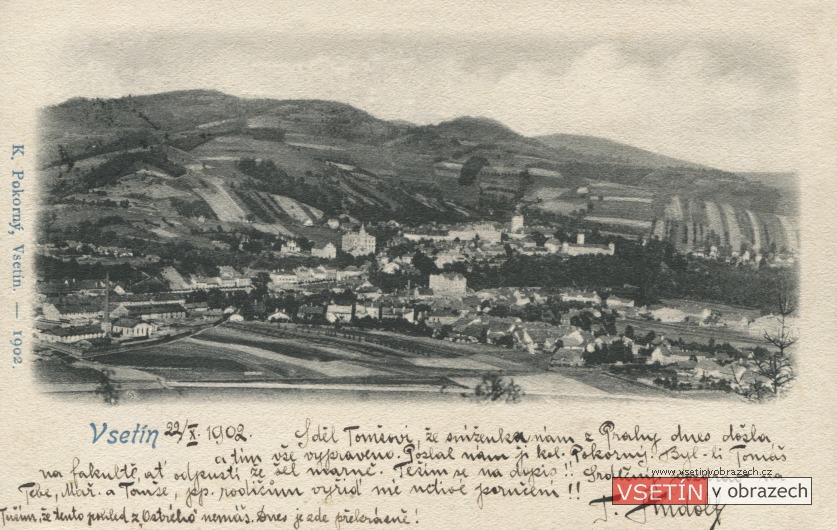 K. Pokorný, Vsetín. — 1902.
Vsetín 22/X. 1902. Sděl Tomšovi, že sníženka nám z Prahy dnes došla
a tím vše vypraveno. Poslal nám ji kol. Pokorný. Byl-li Tomáš
na fakultě, ať odpustí že šel marně. Těším se na dopis!! Srdečný
Tebe, Mař. a Tomše, jsp. rodičům vyřiď mé uctivé poručení!!
Tuším, že tento pohled z Ostrého nemáš. Dnes je zde překrásně!
www.vsetinvobrazech.cz
VSETÍN v obrazech